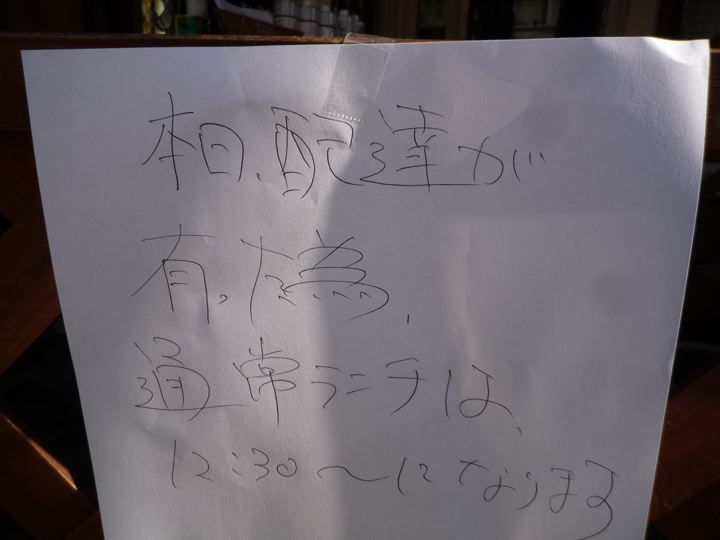 本日、配達が
有った為、
通常ランチは、
12:30〜になります